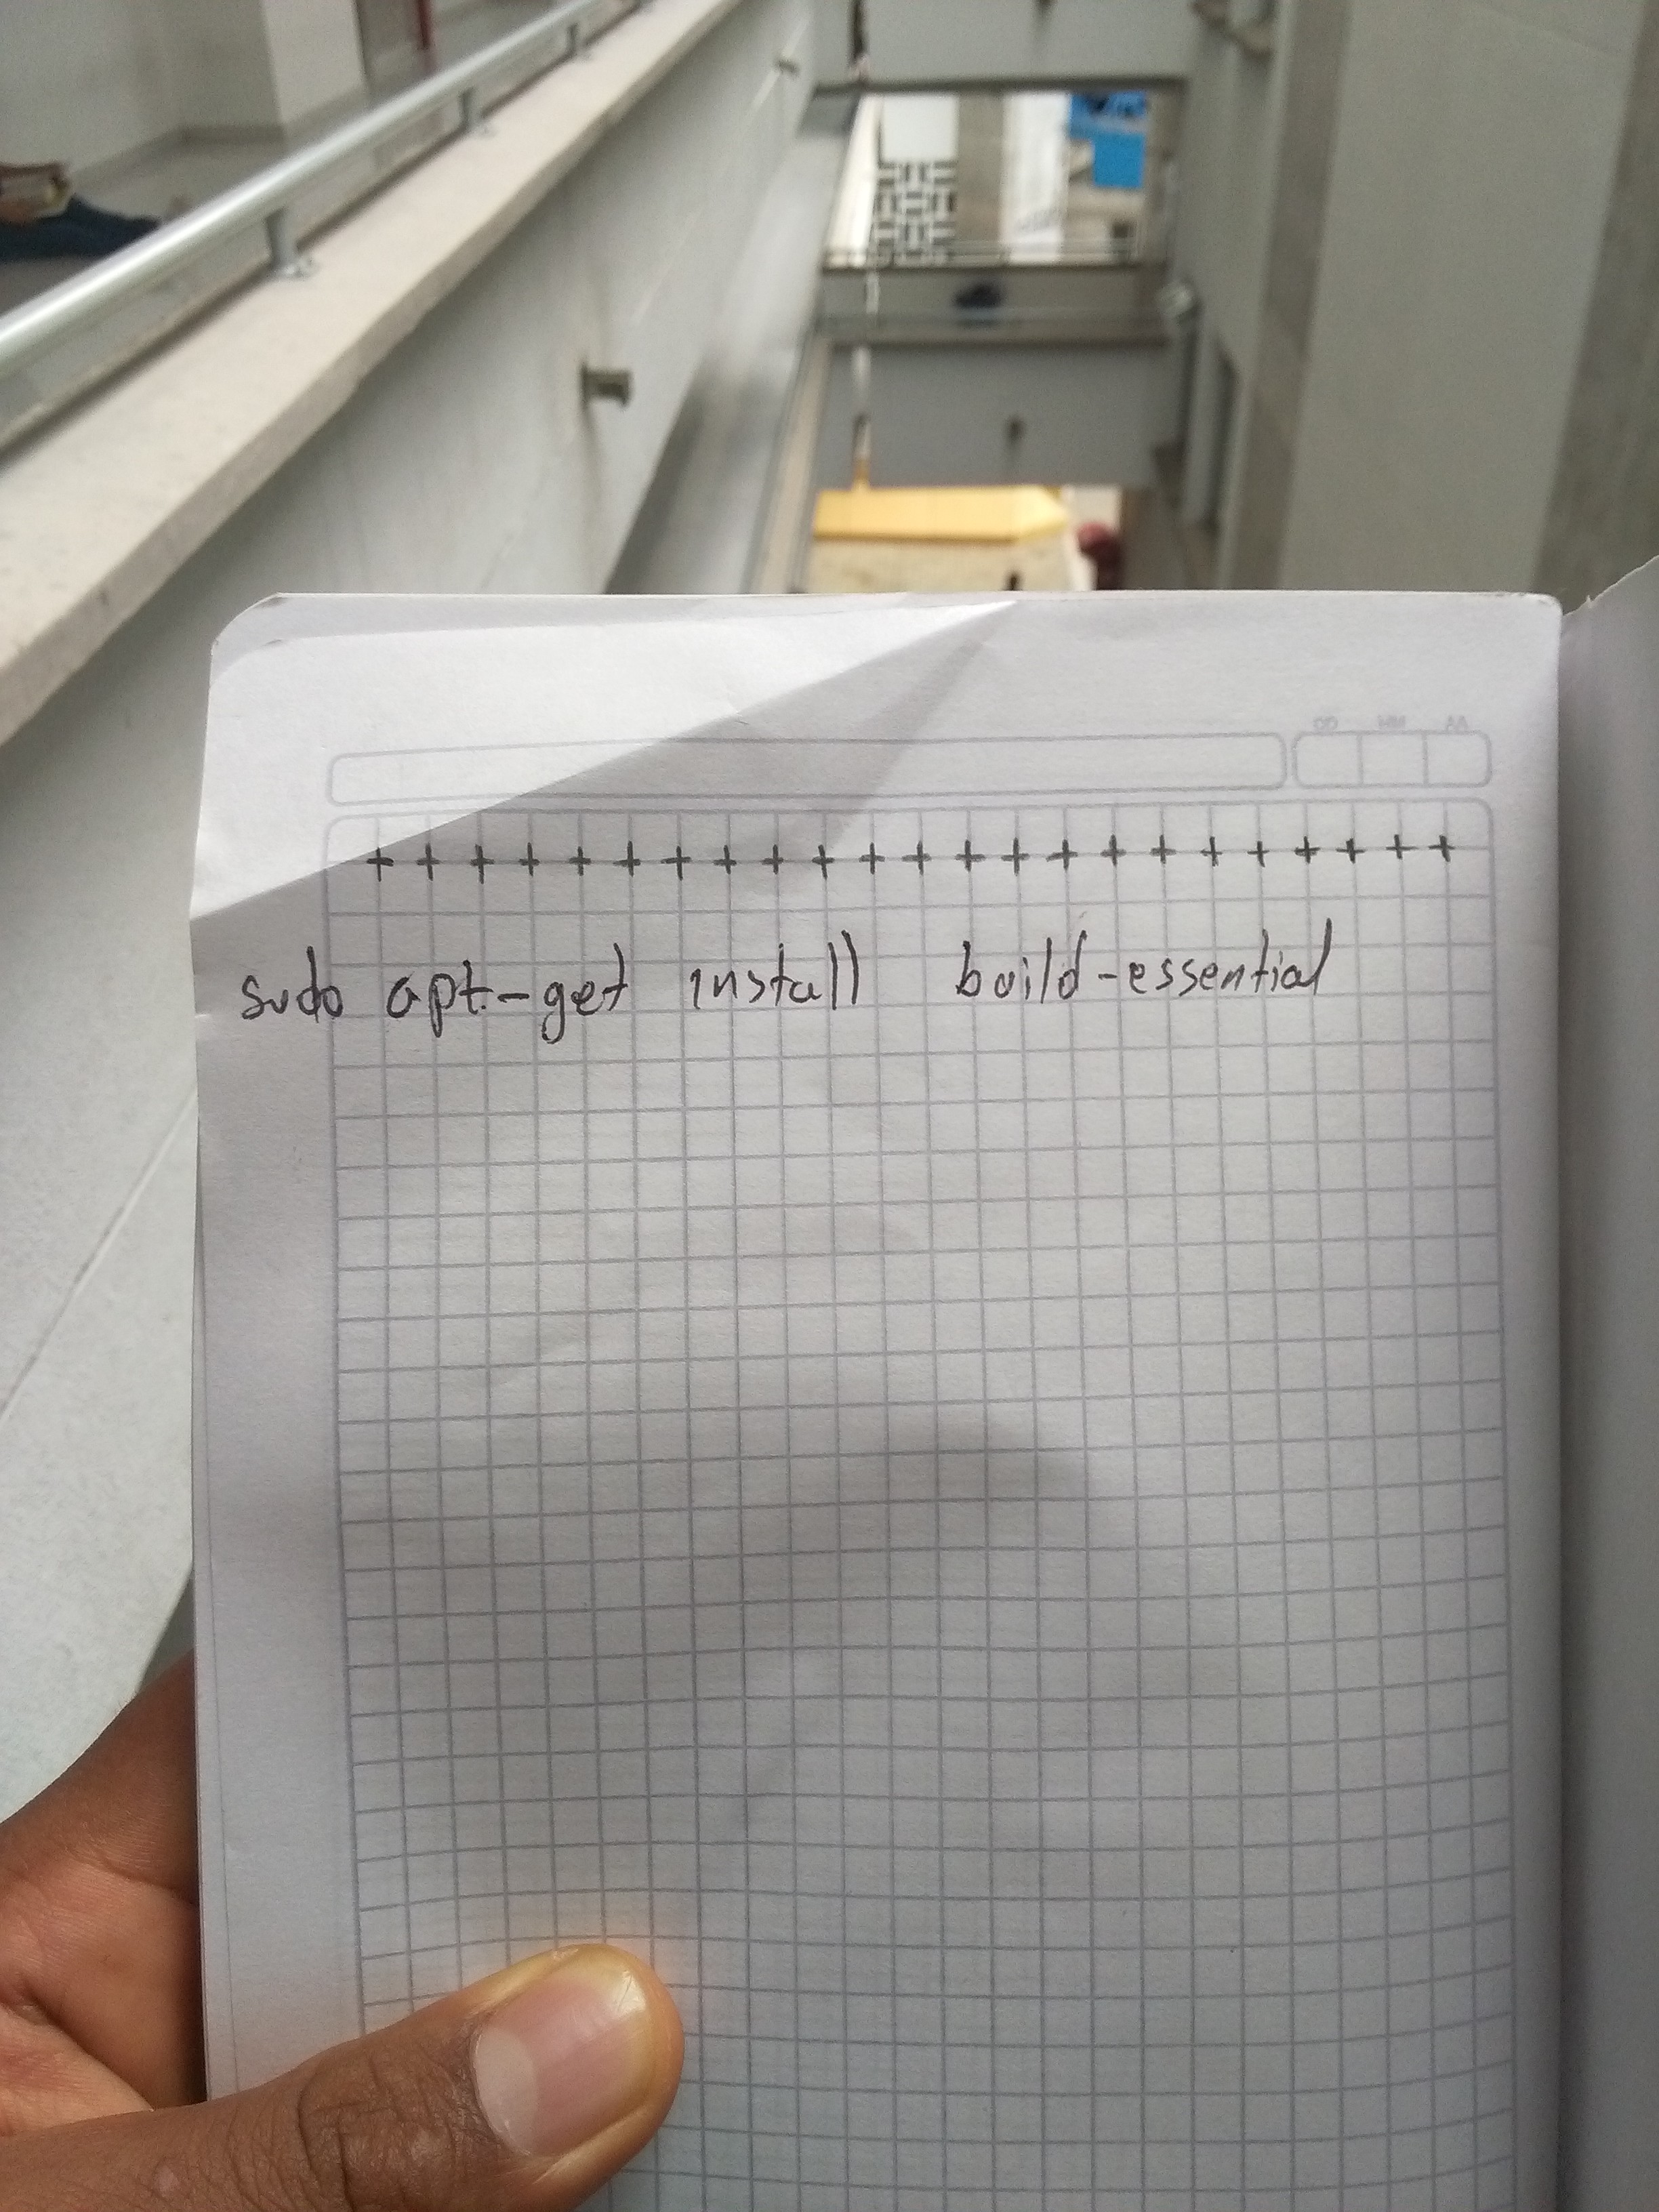 + + + + + + + + + + + + + + + + + + + + + + +
sudo apt-get install build-essential